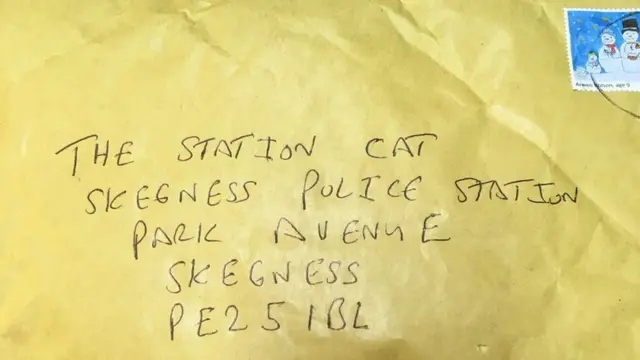 THE STATION CAT
SKEGNESS POLICE STATION
PARK AVENUE
SKEGNESS
PE25 1BL